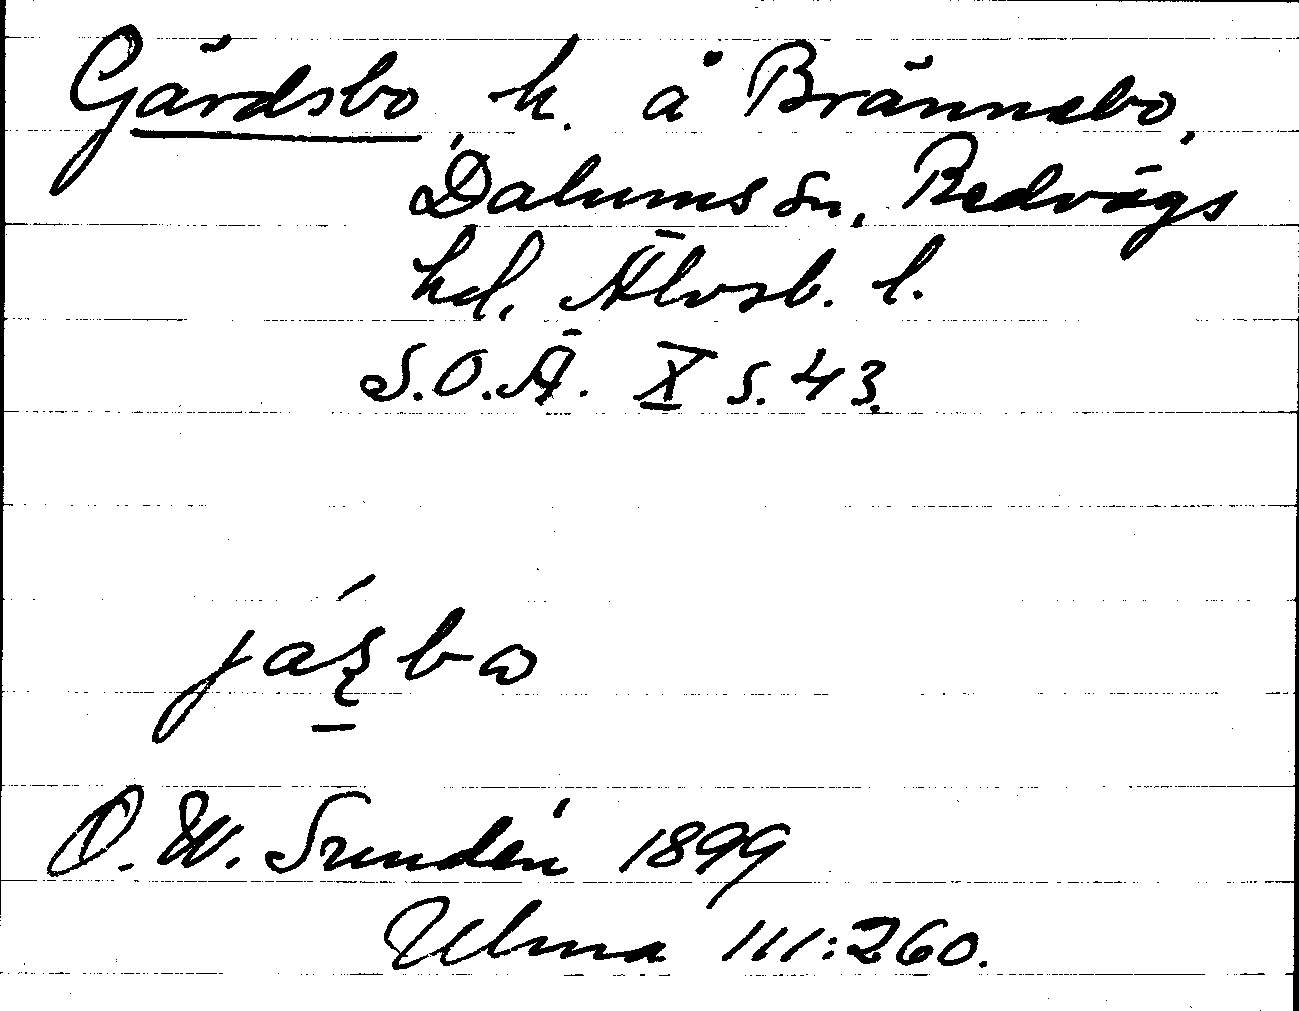 Gärdsbo, h. å Brännebo,
Dalums sn, Redvägs
hd, Älvsb. l.
S.O.Ä. X s. 43.
O. W. Sundén 1899
Ulma 111:260.